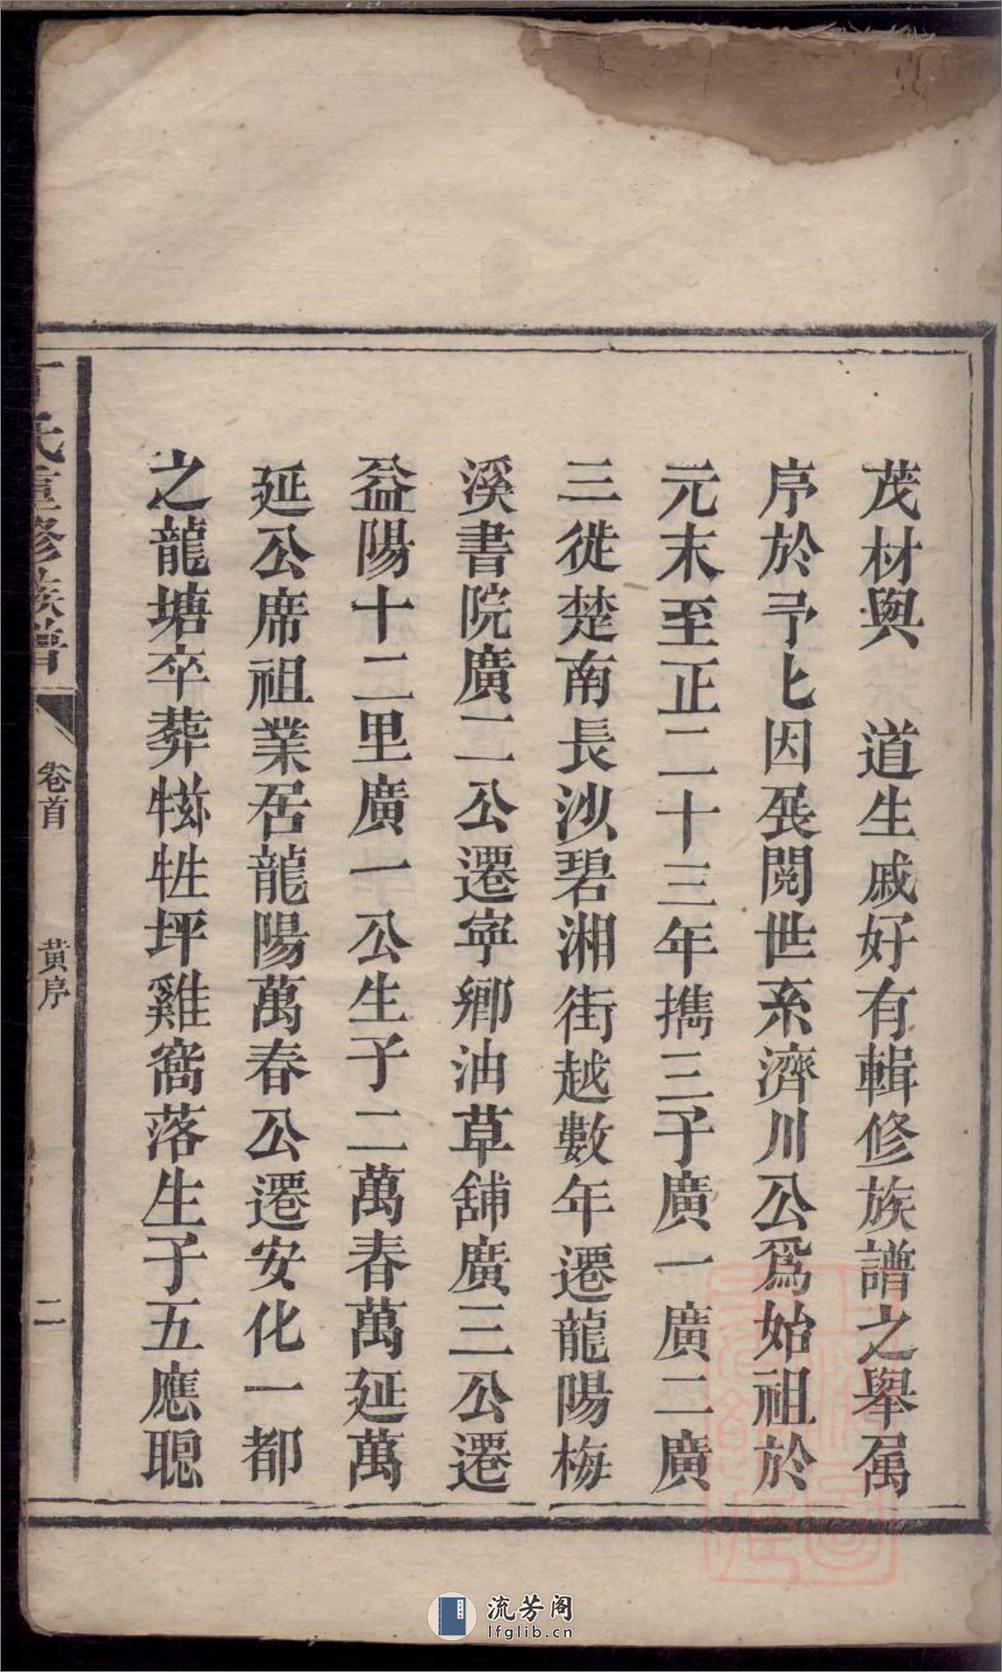 茂材與　道生戚好有輯修族譜之舉属
序於予匕因展閱世系濟川公爲始祖於
元末至正二十三年攜三子廣一廣二廣
三徙楚南長沙碧湘街越數年遷龍陽梅
溪書院廣二公遷寧鄉油草舖廣三公遷
益陽十二里廣一公生子二萬春萬延萬
延公席祖業居龍陽萬春公遷安化一都
之龍塘卒葬犧牲坪雞窩落生子五應聰
氏重修族譜
卷首
黄序
二
流芳阁
lfglib.cn